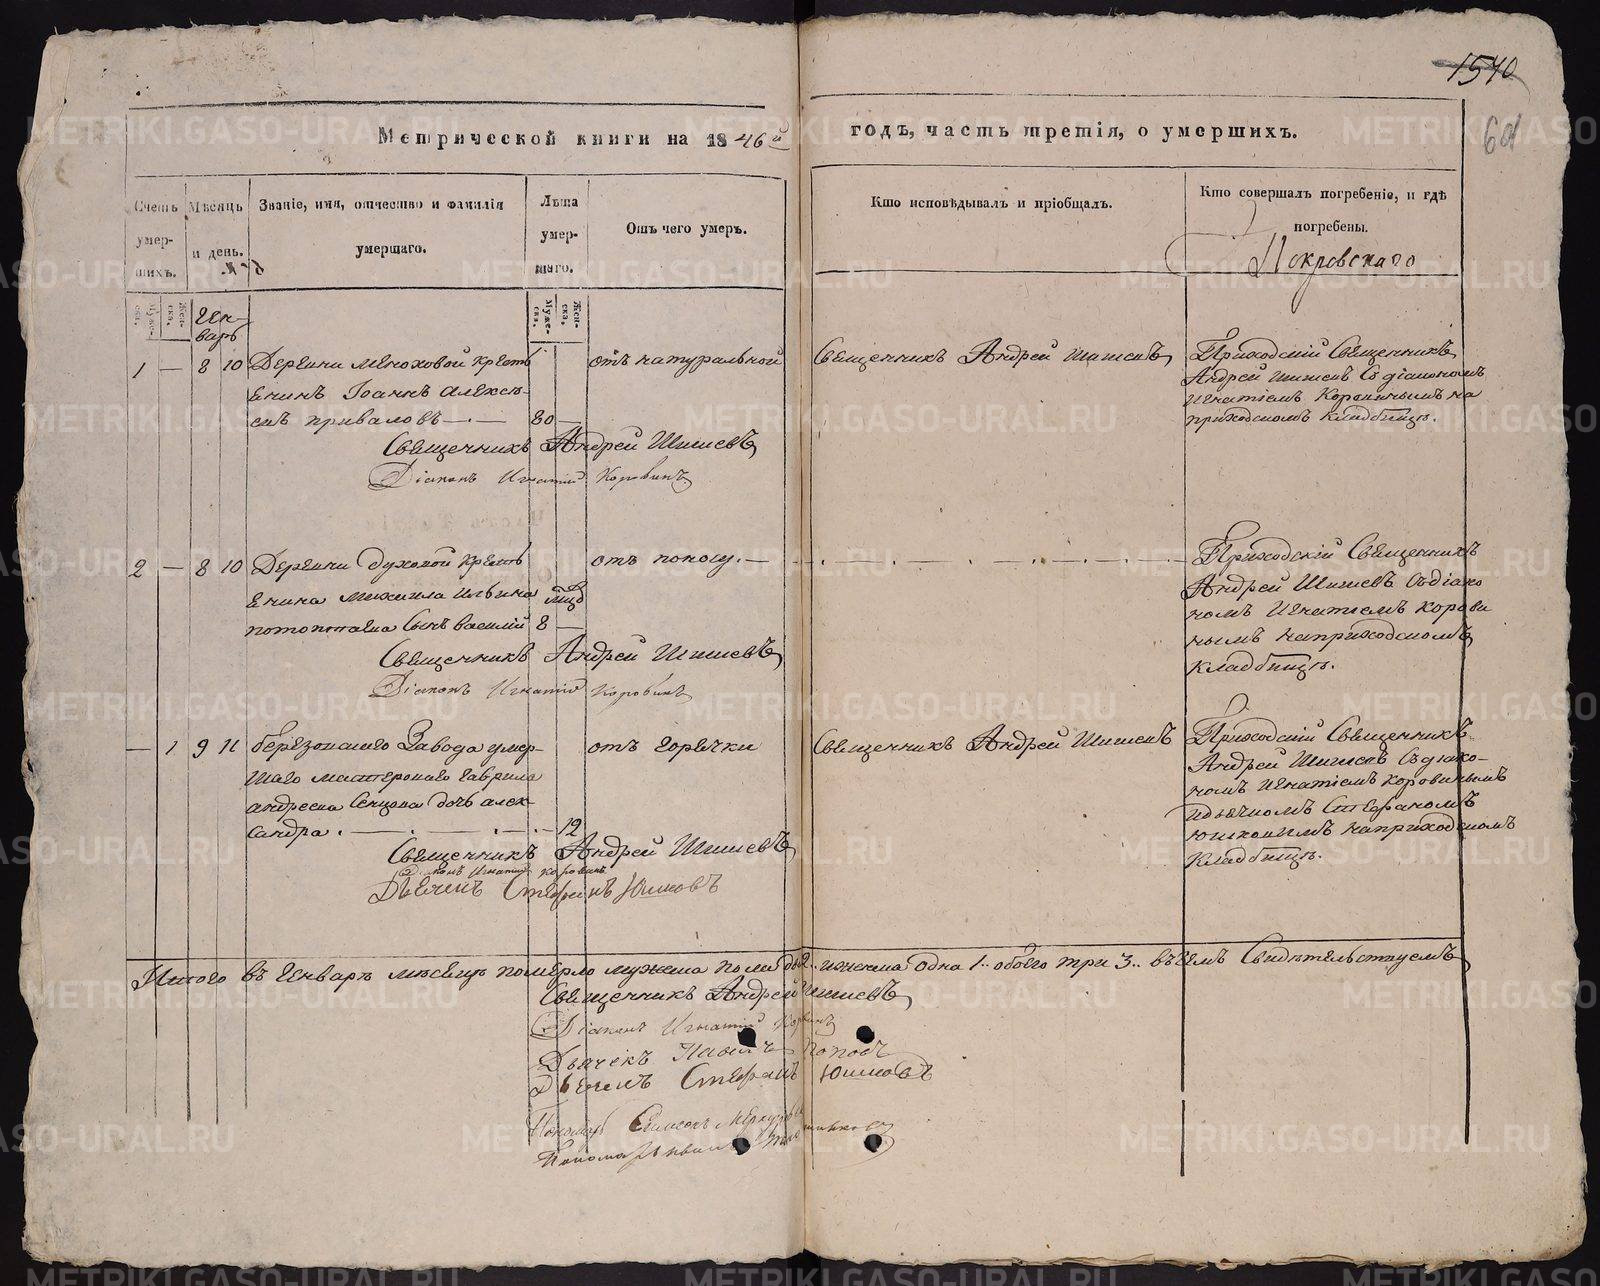 1570
6д
Метрической книги на 1846й годъ, часть третія, о умершихъ.
Счетъ умер-шихъ.
Мѣсяцъ и день.
Званіе, имя, отчество и фамилія умершаго.
Лѣта умер-шаго.
Отъ чего умеръ.
Кто исповѣдывалъ и пріобщалъ.
Кто совершалъ погребеніе, и гдѣ погребены.
Покровскаго
Муже-ска.
Жен-ска.
Муже-ска.
Жен-ска.
Ген-
варь
1 — 8 10 Деревни Меноховой крестъ
янинъ Іоаннъ Алексѣ-
евъ Приваловъ — . — 80 —
отъ натуральной
Священникъ Андрей Шишевъ
Приходскій Священникъ
Андрей Шишевъ Съ діакономъ
Игнатіемъ Коровинымъ на
приходскомъ кладбищѣ.
Священникъ Андрей Шишевъ
Діаконъ Игнатій Коровинъ
2 — 8 10 Деревни Духовой крестъ
янина Михаила Ильина
Потопотаева Сынъ Василій 8 —
отъ поносу. —
Приходскій Священникъ
Андрей Шишевъ Съ діако
номъ Игнатіемъ Корови
нымъ на приходскомъ
кладбищѣ.
Священникъ Андрей Шишевъ
Діаконъ Игнатій Коровинъ
— 1 9 11 Березовскаго Завода умер-
шаго мастероваго Гаврила
Андреева Сенцова дочь Алек-
сандра . — . — . — . — 12
отъ горячки
Священникъ Андрей Шишевъ
Приходскій Священникъ
Андрей Шишевъ Съ діако-
номъ Игнатіемъ Коровинымъ
и дьячкомъ Стефаномъ
Юшковымъ на приходскомъ
кладбищѣ.
Священникъ Андрей Шишевъ
Діаконъ Игнатій Коровинъ
Дьячекъ Стефанъ Юшковъ
Итого въ Генварѣ мѣсяцѣ померло мужеска пола два 2.. женска одна 1.. обоего три 3.. въ чемъ Свидѣтельствуемъ
Священникъ Андрей Шишевъ
Діаконъ Игнатій Коровинъ
Дьячекъ Поповъ
Дьячекъ Стефанъ Юшковъ
Пономарь Симеонъ
Пономарь
METRIKI.GASO-URAL.RU